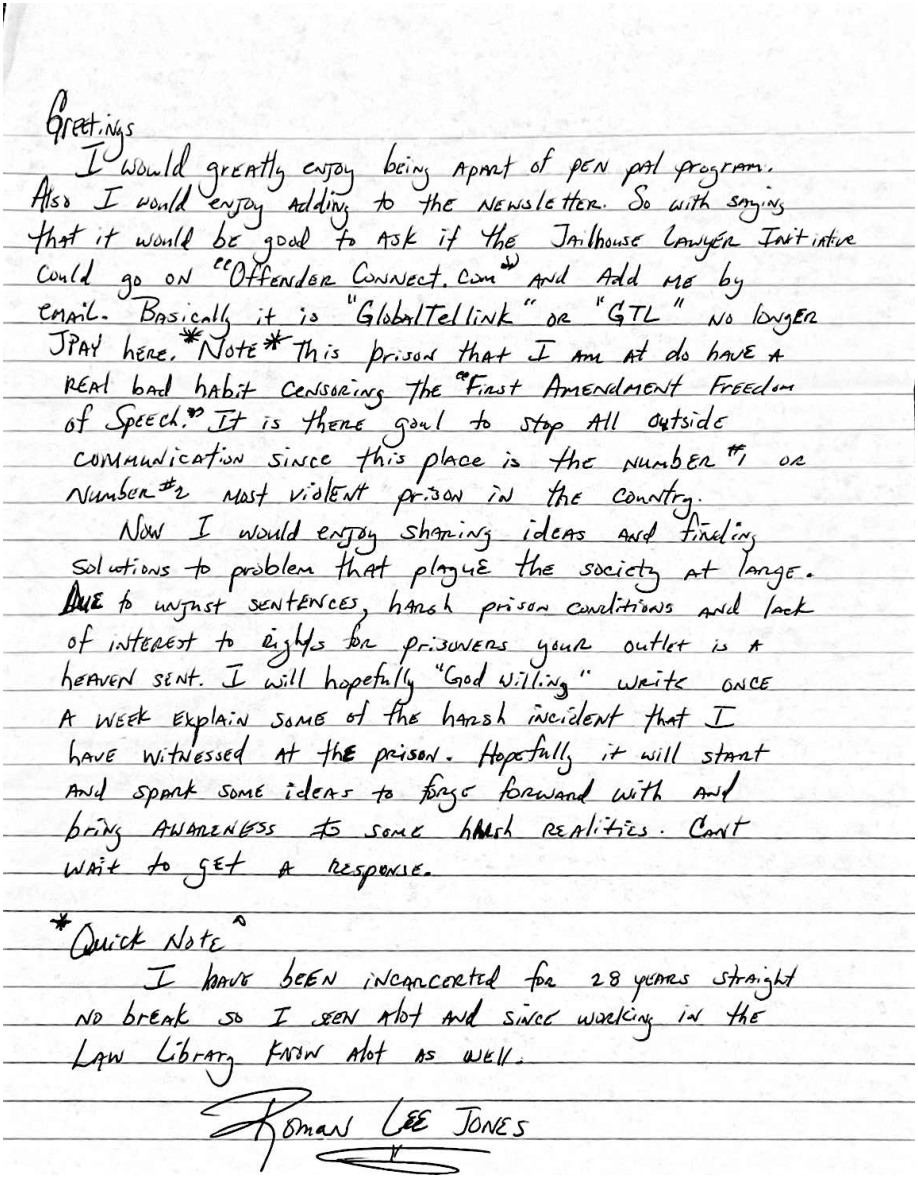 Greetings
I would greatly enjoy being apart of pen pal program.
Also I would enjoy adding to the Newsletter. So with saying
that it would be good to ask if the Jailhouse Lawyer Initiative
could go on "Offender Connect.com" and add me by
email. Basically it is "GlobalTellink" or "GTL" no longer
JPAY here. *Note* This prison that I am at do have a
real bad habit censoring the "First Amendment Freedom
of Speech." It is there goal to stop all outside
communication since this place is the number #1 or
number #2 most violent prison in the country.
Now I would enjoy sharing ideas and finding
solutions to problem that plague the society at large.
Due to unjust sentences, harsh prison conditions and lack
of interest to rights for prisoners your outlet is a
heaven sent. I will hopefully "God willing" write once
a week explain some of the harsh incident that I
have witnessed at the prison. Hopefully it will start
and spark some ideas to forge forward with and
bring awareness to some harsh realities. Cant
wait to get a response.
*Quick Note^
I have been incarcerted for 28 years straight
no break so I seen alot and since working in the
Law Library know alot as well.
Roman Lee Jones